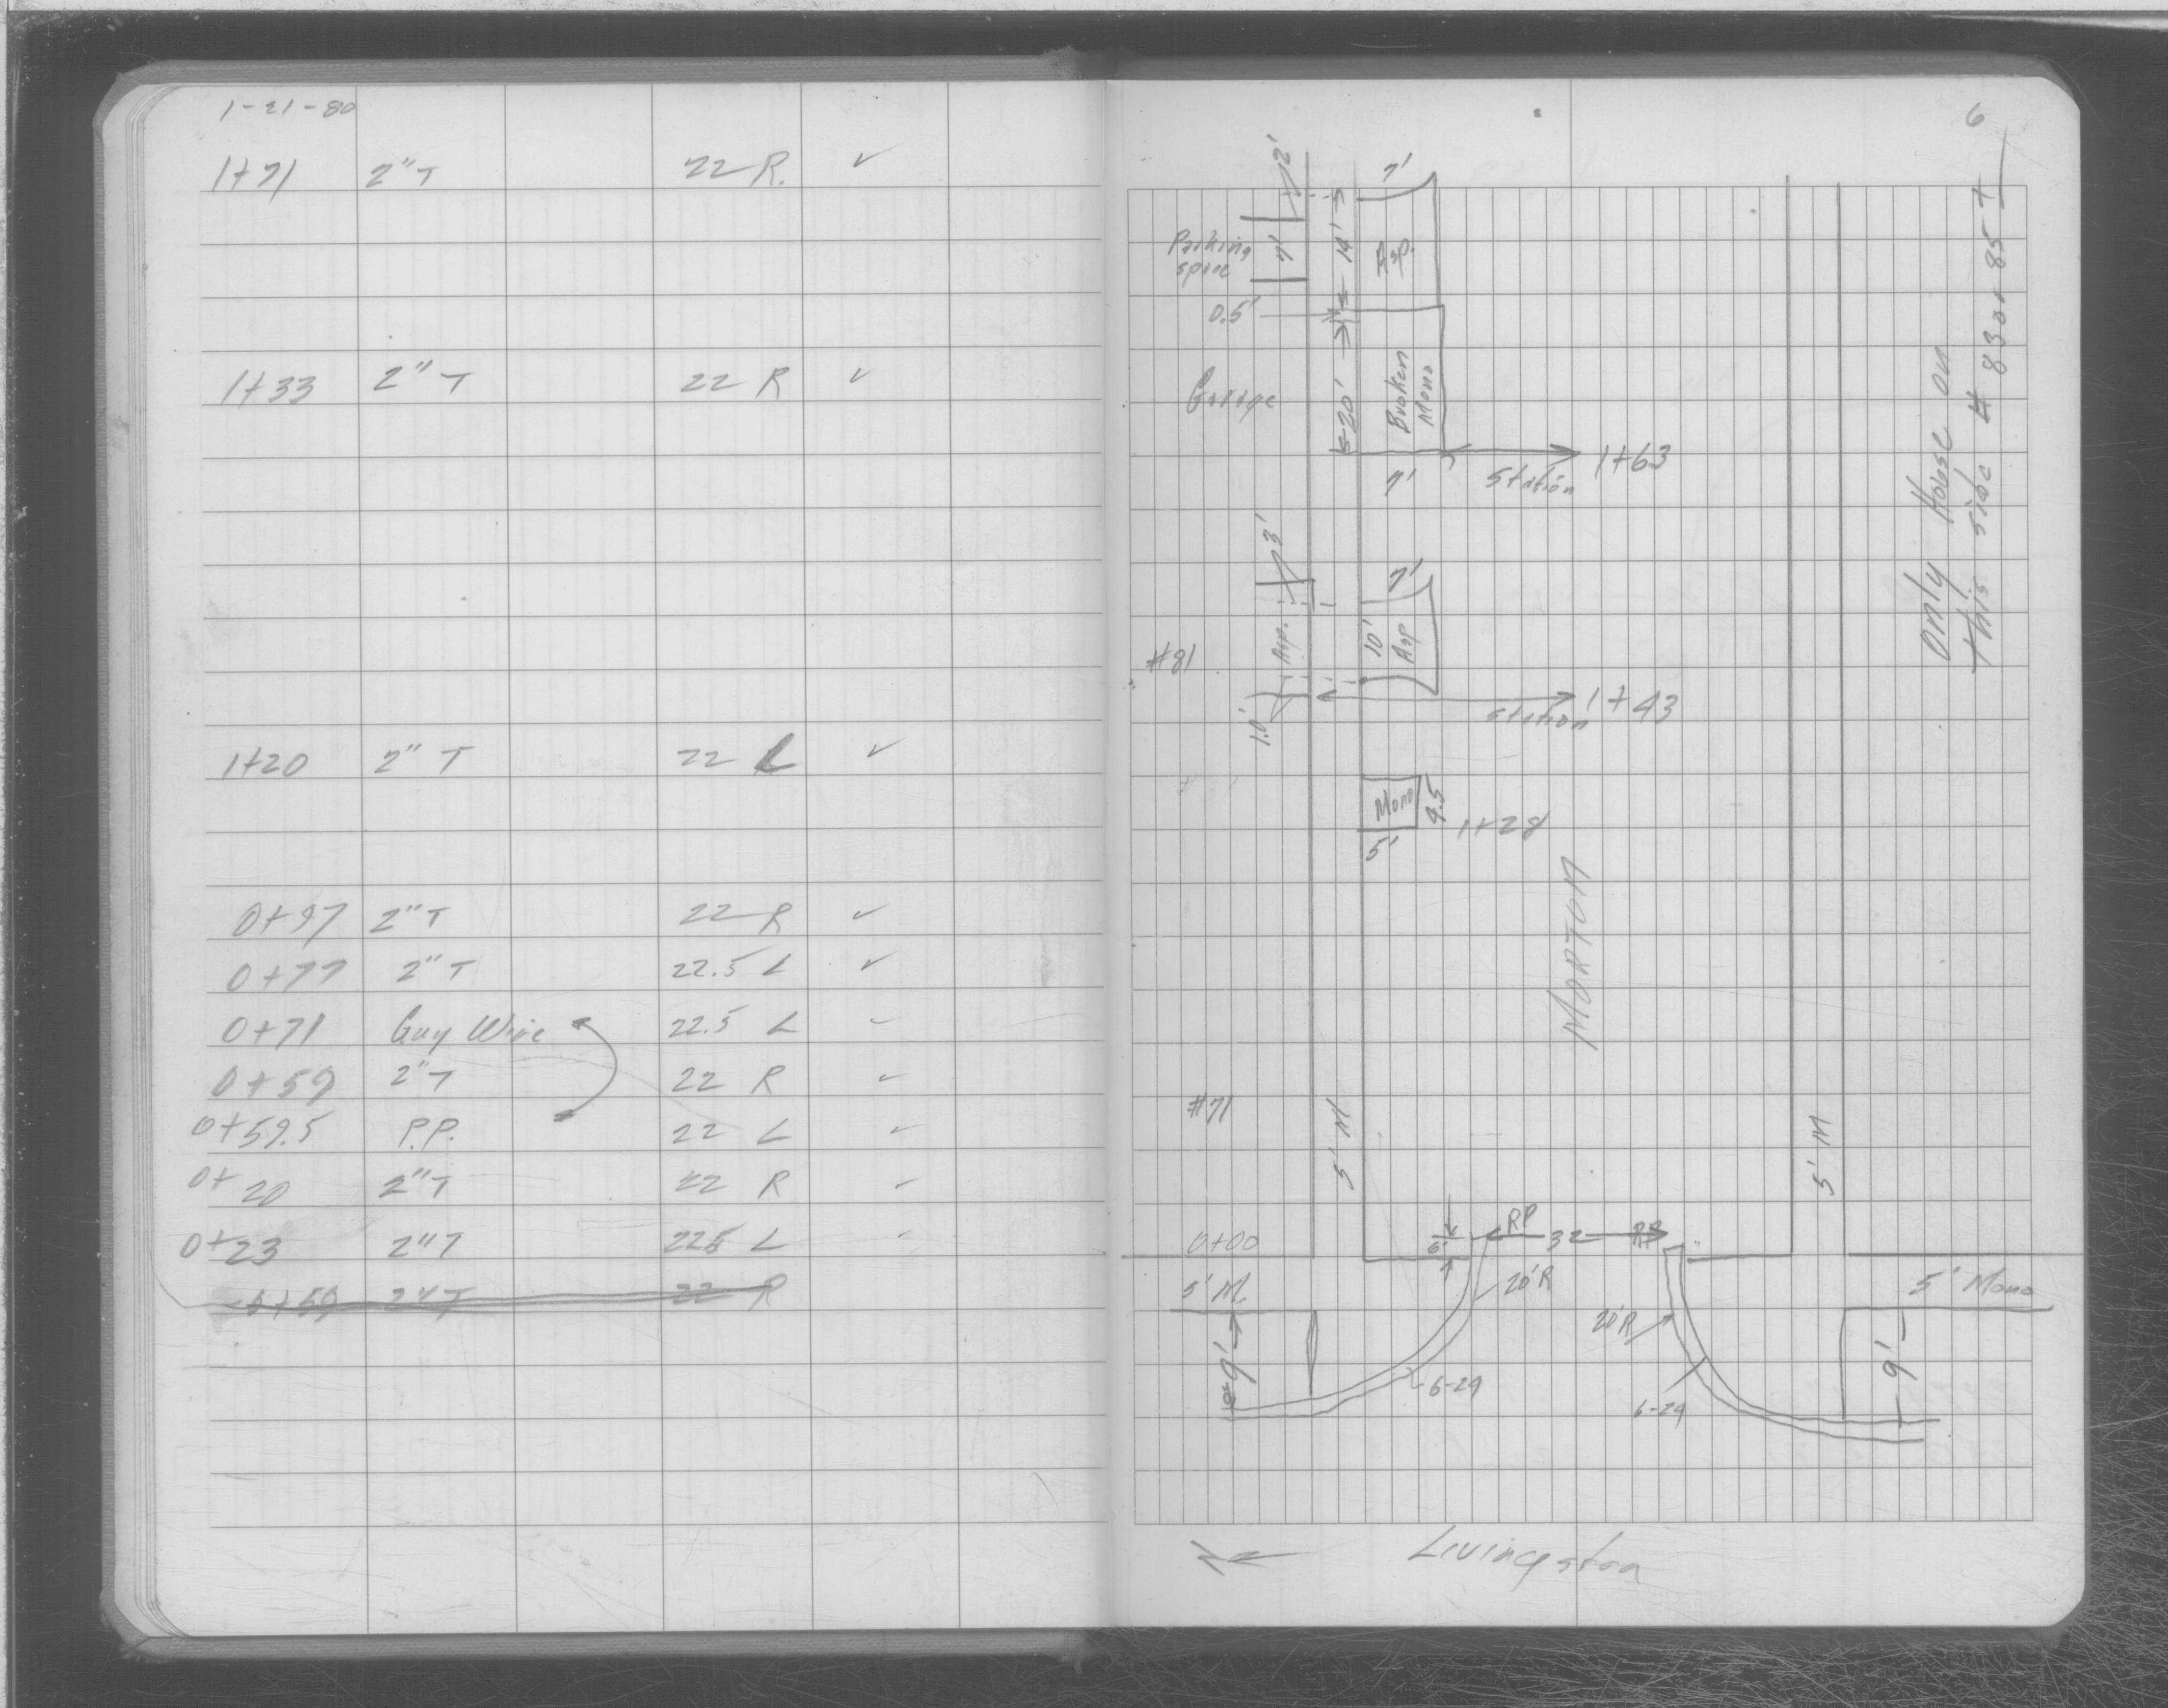 1-21-80
1+71 2" T 22 R. ✓
1+33 2" T 22 R ✓
1+20 2" T 22 L ✓
0+97 2" T 22 R ✓
0+77 2" T 22.5 L ✓
0+71 Guy Wire 22.5 L ✓
0+59 2" T 22 R ✓
0+59.5 P.P. 22 L ✓
0+20 2" T 22 R ✓
0+23 2" T 22.5 L ✓
0+59 2" T 22 R
6
2'
7'
Parking
space
7'
14'
Asp.
0.5'
Garage
20'
Broken
Mono
7'
Station 1+63
only House on
this side # 83 or 85 T
3'
7'
#81
Asp.
10'
Asp
1.0'
Station 1+43
Mono
4.5
5'
1+28
MORTON
#71
5' M
5' M
0+00
6'
RP
32
RP
5' M
20'R
5' Mono
9'
20'R
9'
6-24
6-24
N
Livingston